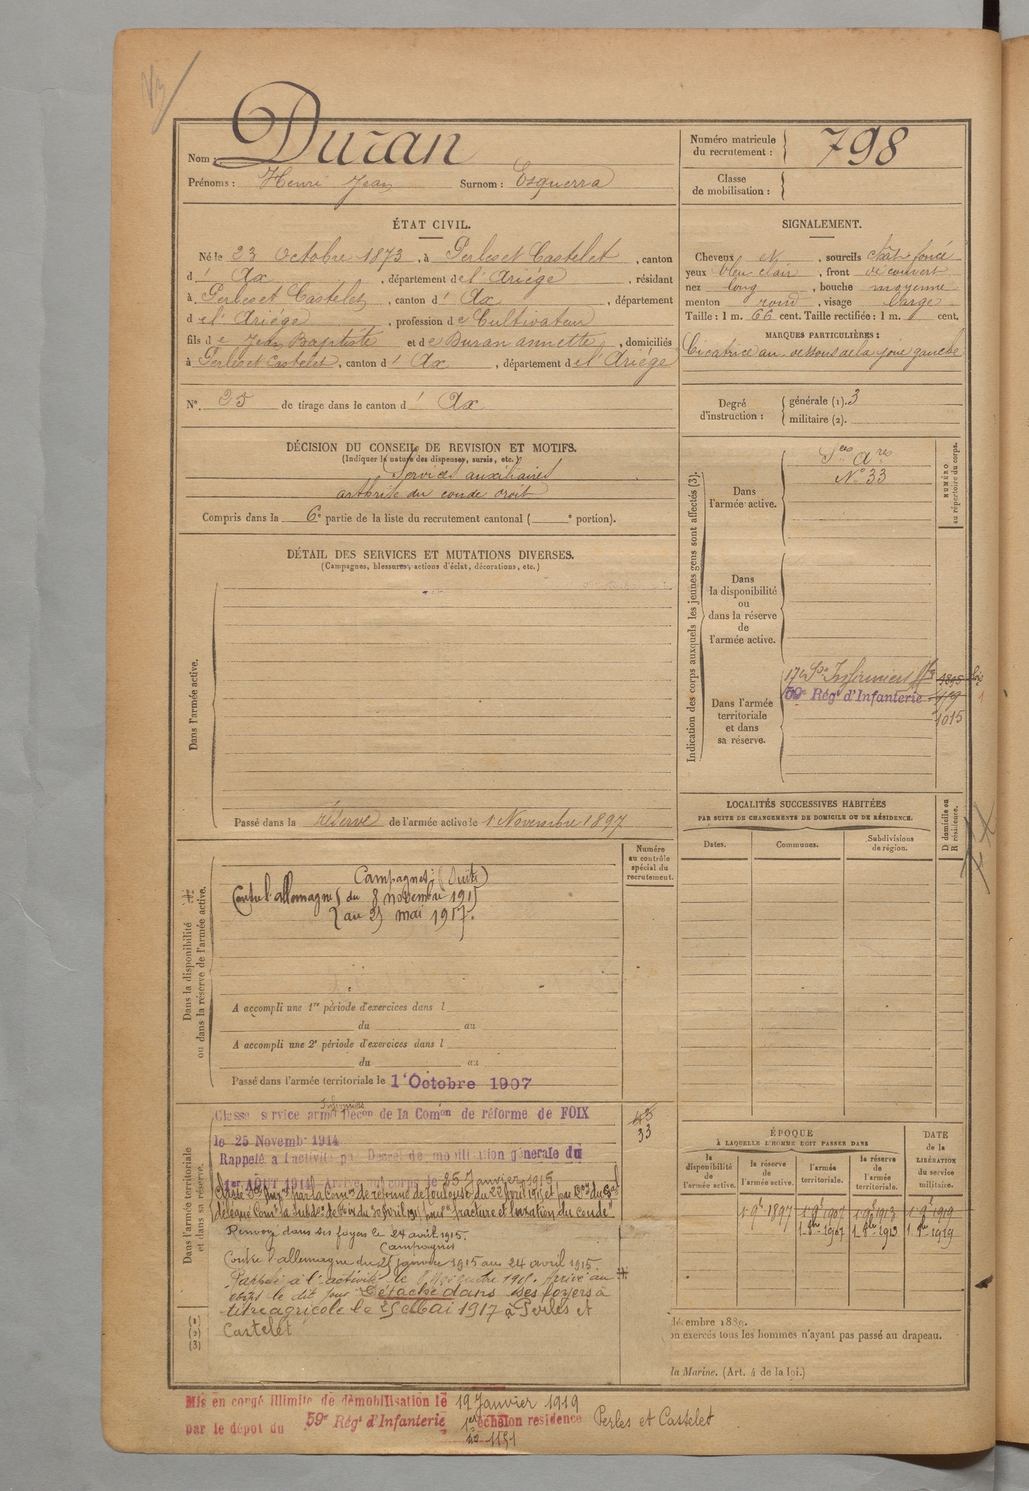 Nom : Duran
Prénoms : Henri Jean Surnom : Esquerra
Numéro matricule du recrutement : 798
Classe de mobilisation :
ÉTAT CIVIL.
Né le 23 Octobre 1873, à Perles et Castelet, canton
d' Ax, département de l'Ariége, résidant
à Perles et Castelet, canton d' Ax, département
de l'Ariége, profession de Cultivateur
fils de Jean Baptiste et de Duran annette, domiciliés
à Perles et Castelet, canton d' Ax, département de l'Ariége
N° 25 de tirage dans le canton d' Ax
SIGNALEMENT.
Cheveux et, sourcils chât. foncé
yeux bleu clair, front découvert
nez long, bouche moyenne
menton rond, visage large
Taille : 1 m. 66 cent. Taille rectifiée : 1 m. cent.
MARQUES PARTICULIÈRES :
Cicatrice au dessous de la joue gauche
Degré d'instruction : générale (1). 3
militaire (2).
DÉCISION DU CONSEIL DE REVISION ET MOTIFS.
(Indiquer la nature des dispenses, sursis, etc.)
Services auxiliaires
arthrite du coude droit
Compris dans la 6e partie de la liste du recrutement cantonal ( e portion).
DÉTAIL DES SERVICES ET MUTATIONS DIVERSES.
(Campagnes, blessures, actions d'éclat, décorations, etc.)
Dans l'armée active.
Passé dans la réserve de l'armée active le 1 Novembre 1897
Indication des corps auxquels les jeunes gens sont affectés (3).
NUMÉRO au répertoire du corps.
Dans l'armée active.
Ses Ares
N° 33
Dans la disponibilité ou dans la réserve de l'armée active.
Dans l'armée territoriale et dans sa réserve.
17e Son Infirmiers
59e Régt d'Infanterie
1015
LOCALITÉS SUCCESSIVES HABITÉES
PAR SUITE DE CHANGEMENTS DE DOMICILE OU DE RÉSIDENCE.
Dates. Communes. Subdivisions de région. D domicile ou R résidence.
Dans la disponibilité ou dans la réserve de l'armée active.
Numéro au contrôle spécial du recrutement.
Campagnes : (Suite)
Contre l'allemagne du 8 novembre 1915
au 25 mai 1917.
A accompli une 1re période d'exercices dans l
du au
A accompli une 2e période d'exercices dans l
du au
Passé dans l'armée territoriale le 1er Octobre 1907
Dans l'armée territoriale et dans sa réserve.
Classé service armé Décon de la Comon de réforme de FOIX
le 25 Novembre 1914
Rappelé à l'activité par Décret de mobilisation générale du
1er AOUT 1914 Arrivé au corps le 25 Janvier 1915
33
fracture et luxation du coude"
Renvoyé dans ses foyers le 24 avril 1915.
Campagnes
Contre l'allemagne du 25 janvier 1915 au 24 avril 1915.
Rappelé à l'activité le 8 Novembre 1915. Arrivé au
corps le dit jour Détaché dans ses foyers à
titre agricole le 25 Mai 1917 à Perles et
Castelet
(1)
(2)
(3)
ÉPOQUE
À LAQUELLE L'HOMME DOIT PASSER DANS
DATE de la LIBÉRATION du service militaire.
la disponibilité de l'armée active. la réserve de l'armée active. l'armée territoriale. la réserve de l'armée territoriale.
1 9e 1897 1 9e 1907 1 9e 1913 1 9e 1919
1 8bre 1907 1 8bre 1913 1 8bre 1919
décembre 1889.
on exercés tous les hommes n'ayant pas passé au drapeau.
la Marine. (Art. 4 de la loi.)
Mis en congé illimité de démobilisation le 19 Janvier 1919
par le dépôt du 59e Régt d'Infanterie 1er échelon residence Perles et Castelet